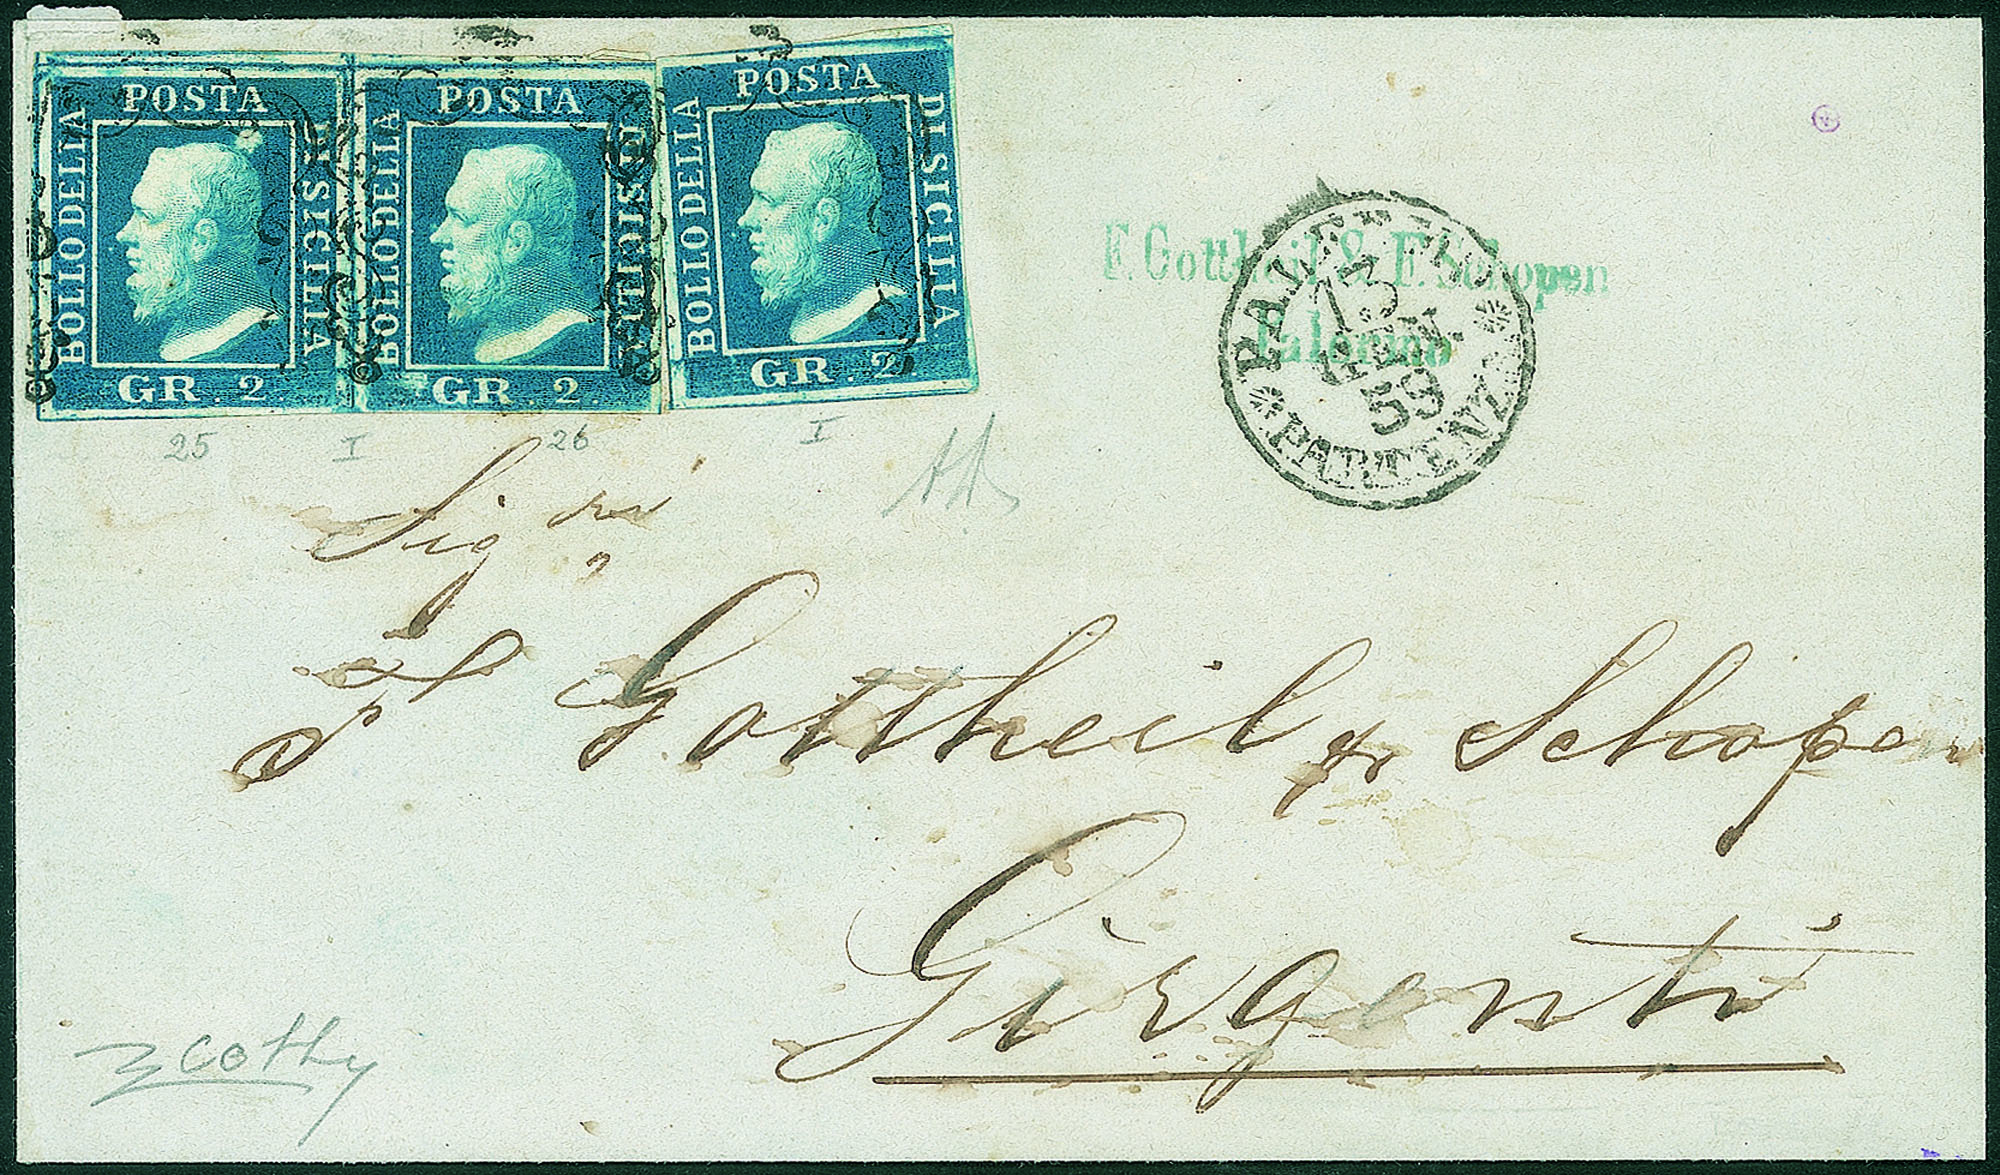 POSTA
BOLLO DELLA
DI SICILIA
GR. 2.
POSTA
BOLLO DELLA
DI SICILIA
GR. 2.
POSTA
BOLLO DELLA
DI SICILIA
GR. 2.
25 I 26 I
F. Gottheil & F. Schopen
Palermo
PALERMO
15
GEN.
59
PARTENZA
Sig ri
F Gottheil & Schopen
Girgenti